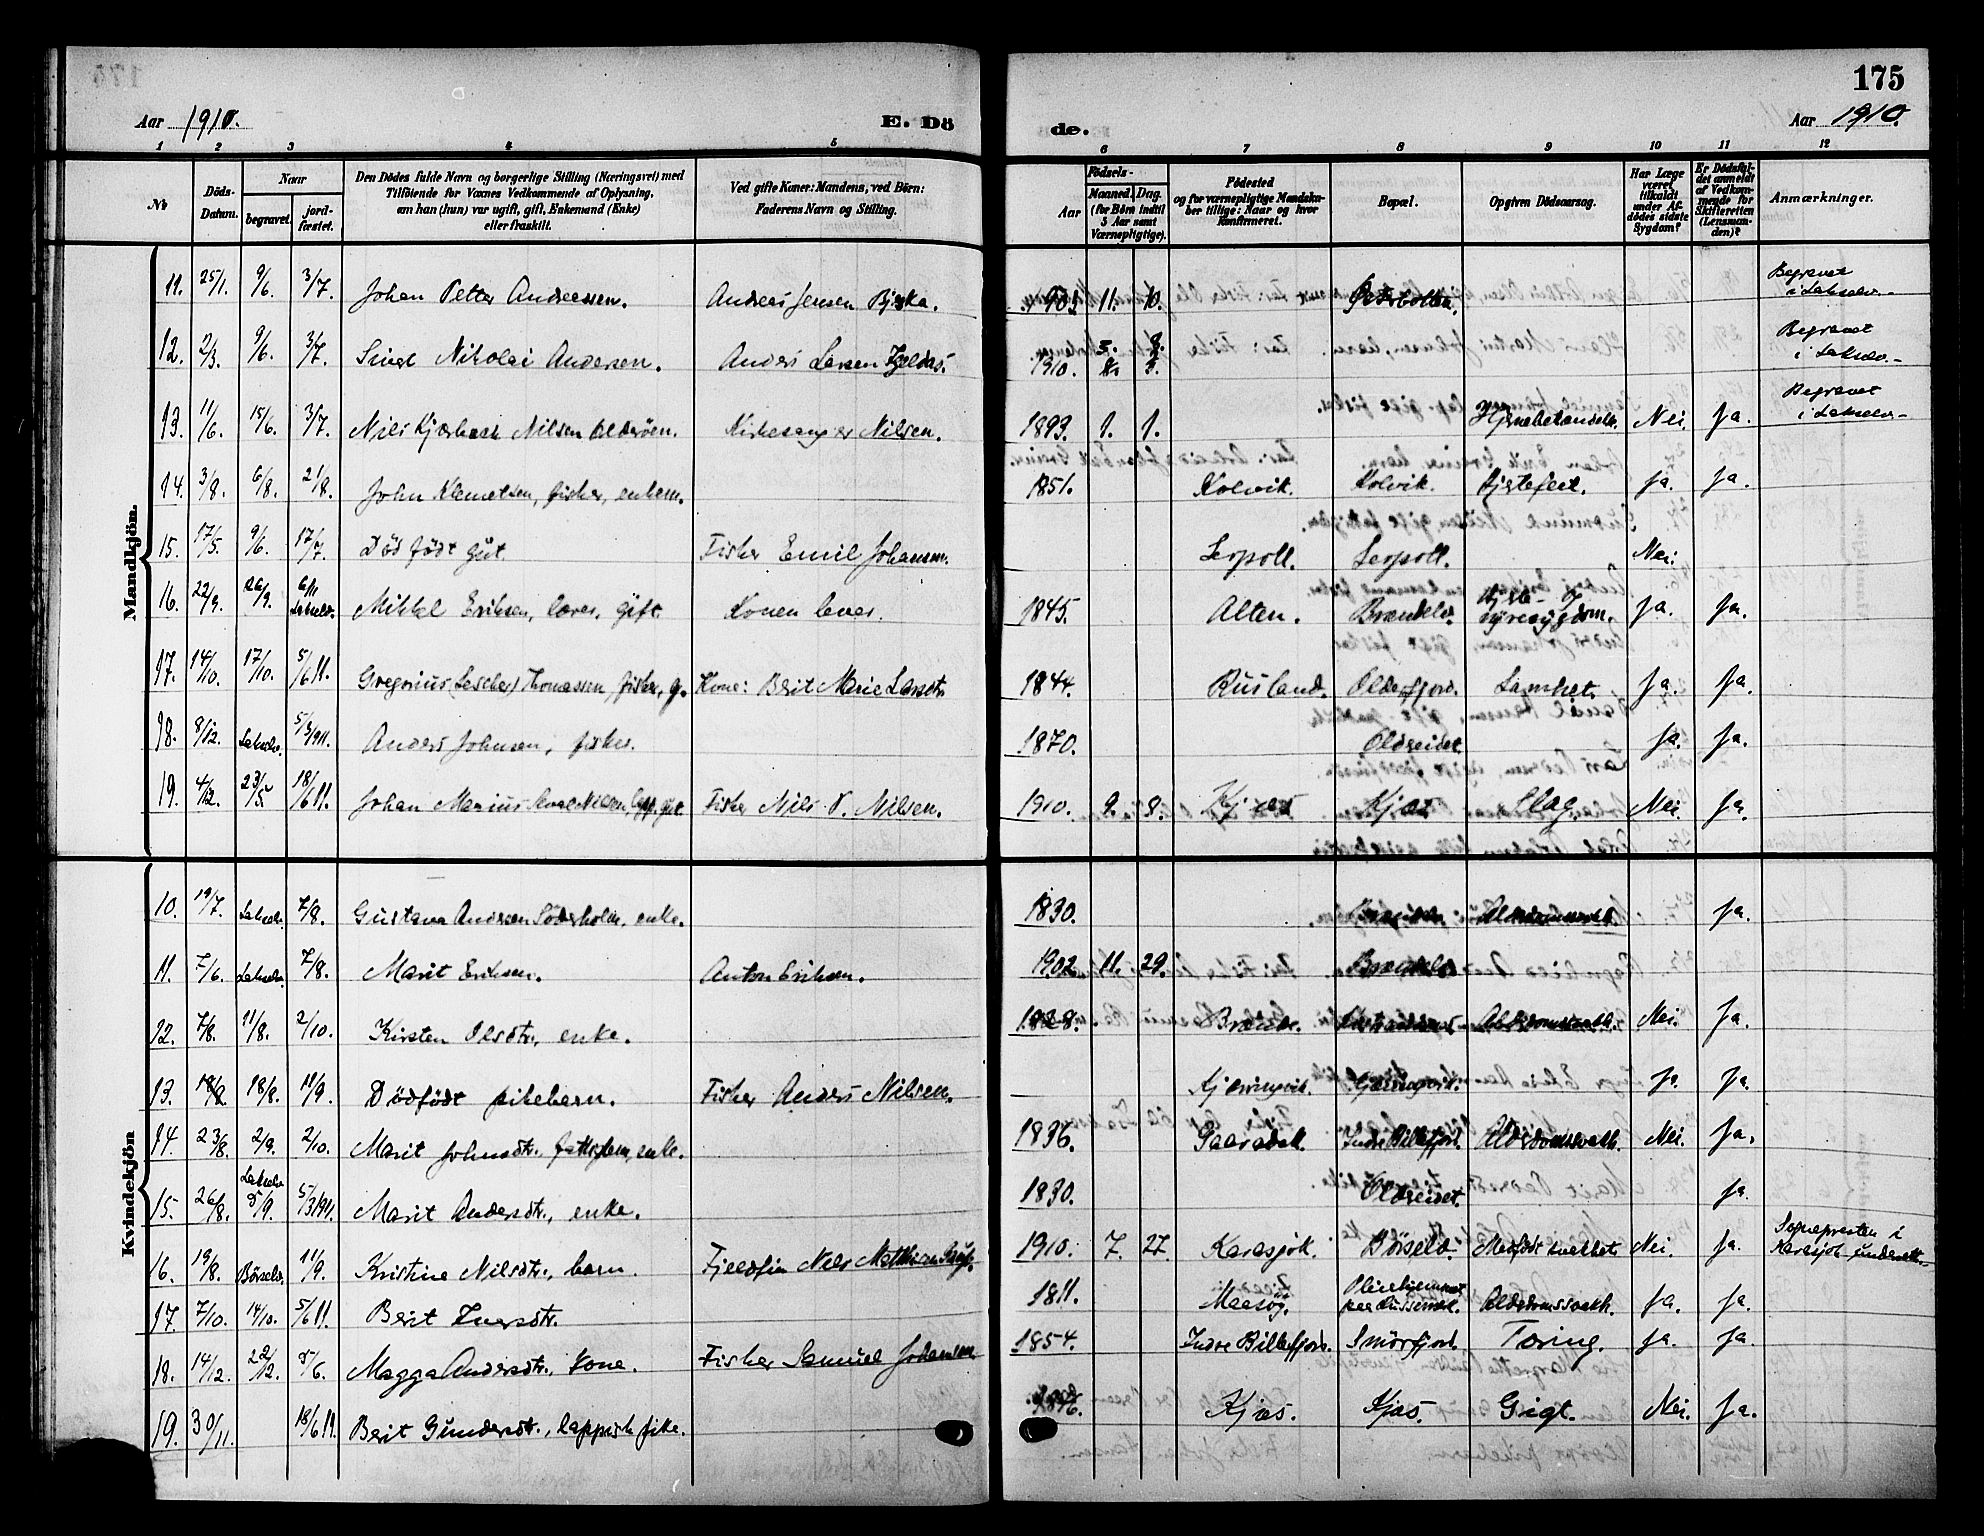 175
Aar 1910.
E. Dö
de.
Aar 1910.
1 2 3 4 5 6 7 8 9 10 11 12
No
Döds-
Datum.
Naar
begravet.
jord-
fæstet.
Den Dödes fulde Navn og borgerlige Stilling (Næringsvei) med
Tilföiende for Voxnes Vedkommende af Oplysning,
om han (hun) var ugift, gift, Enkemand (Enke)
eller fraskilt.
Ved gifte Koner: Mandens, ved Börn:
Faderens Navn og Stilling.
Födsels-
Aar
Maaned. Dag.
(for Börn indtil
5 Aar samt
Værnepligtige).
Födested
og for værnepligtige Mandska-
ber tillige: Naar og hvor
Konfirmeret.
Bopæl.
Opgiven Dödsaarsag.
Har Læge
været
tilkaldt
under Af-
dödes sidste
Sygdom?
Er Dödsfal-
det anmeldt
af Vedkom-
mende for
Skifteretten
(Lensman-
den)?
Anmærkninger.
Mandkjön.
11. 25/1. 9/6. 3/7. Johan Petter Andreassen. Andreas Jensen 11. 10. Begravet
i Lakselv.
12. 2/3. 9/6. 3/7. Nikolai Andersen. Anders Larsen 1910. Begravet
i Lakselv.
13. 11/6. 15/6. 3/7. Nils Nilsen Olderöen. Kirkesanger Nilsen. 1893. 1. 1. Nei. Ja. Begravet
i Lakselv.
14. 3/8. 6/8. 21/8. John Klemetsen, fisker, enkem. 1851. Kolvik. Kolvik. Hjertefeil. Ja. Ja.
15. 17/5. 9/6. 17/7. Död födt gut. Fisker Emil Johansen. Leirpoll. Leirpoll. Nei.
16. 22/9. 26/9. 6/11 Lakselv. Mikkel Eriksen, gift. Konen lever. 1845. Alten. Brændelv. Hjerte- og
nyresygdom. Ja. Ja.
17. 14/10. 17/10. 5/6 11. Gregorius Thomassen fisker, g. Kone: Berit Marie Larsdtr. 1844. Rusland. Olderfjord. Lamhet. Ja. Ja.
18. 8/12. Lakselv. 5/3 1911. Anders Johnsen, fisker. 1870. Oldereidet. Ja. Ja.
19. 4/12. 23/5. 18/6 11. Johan Marius Nilsen, lapp. gut. Fisker Nils P. Nilsen. 1910. 9. 8. Kjæs Kjæs Slag. Nei. Ja.
Kvindekjön
10. 19/7. Lakselv. 7/8. Gustava Andersen Söderholm, enke. 1830. Alderdomssvakh. Ja.
11. 7/6. Lakselv. 7/8. Marit Eriksen. Anton Eriksen. 1902. 11. 29. Brændelv
12. 7/8. 11/8. 2/10. Kirsten Olsdtr., enke. 1828. Alderdomssvakh. Nei. Ja.
13. 18/8. 18/8. 11/9. Dödfödt pikebarn. Fisker Anders Nilsen. Kjærringvik. Kjærringvik. Ja. Ja.
14. 23/8. 2/9. 2/10. Marit Johnsdtr. fattiglem, enke. 1836. Indre Billefjord. Alderdomssvakh. Nei. Ja.
15. 26/8. Lakselv 5/9. 5/3 1911. Marit Andersdtr., enke. 1830. Oldereidet. Ja.
16. 19/8. Börselv. 11/9. Kristine Nilsdtr., barn. Fjeldfin Nils Mathisen 1910. 7. 27. Karasjok. Börselv. Medfödt svakhet Nei. Ja. Sognepresten i
Karasjok underrett.
17. 7/10. 14/10. 5/6 11. Berit Iversdtr. 1811. Maasöy. Pleiehjemmet
paa Russemark. Alderdomssvakh. Ja. Ja.
18. 14/12. 22/12. 5/6. Magga Andersdtr., kone. Fisker Samuel Johansen 1854. Indre Billefjord. Smörfjord. Tæring. Ja. Ja.
19. 30/11. 18/6 11. Berit Gundersdtr., lappisk pike. Kjæs. Kjæs. Gigt. Nei. Ja.